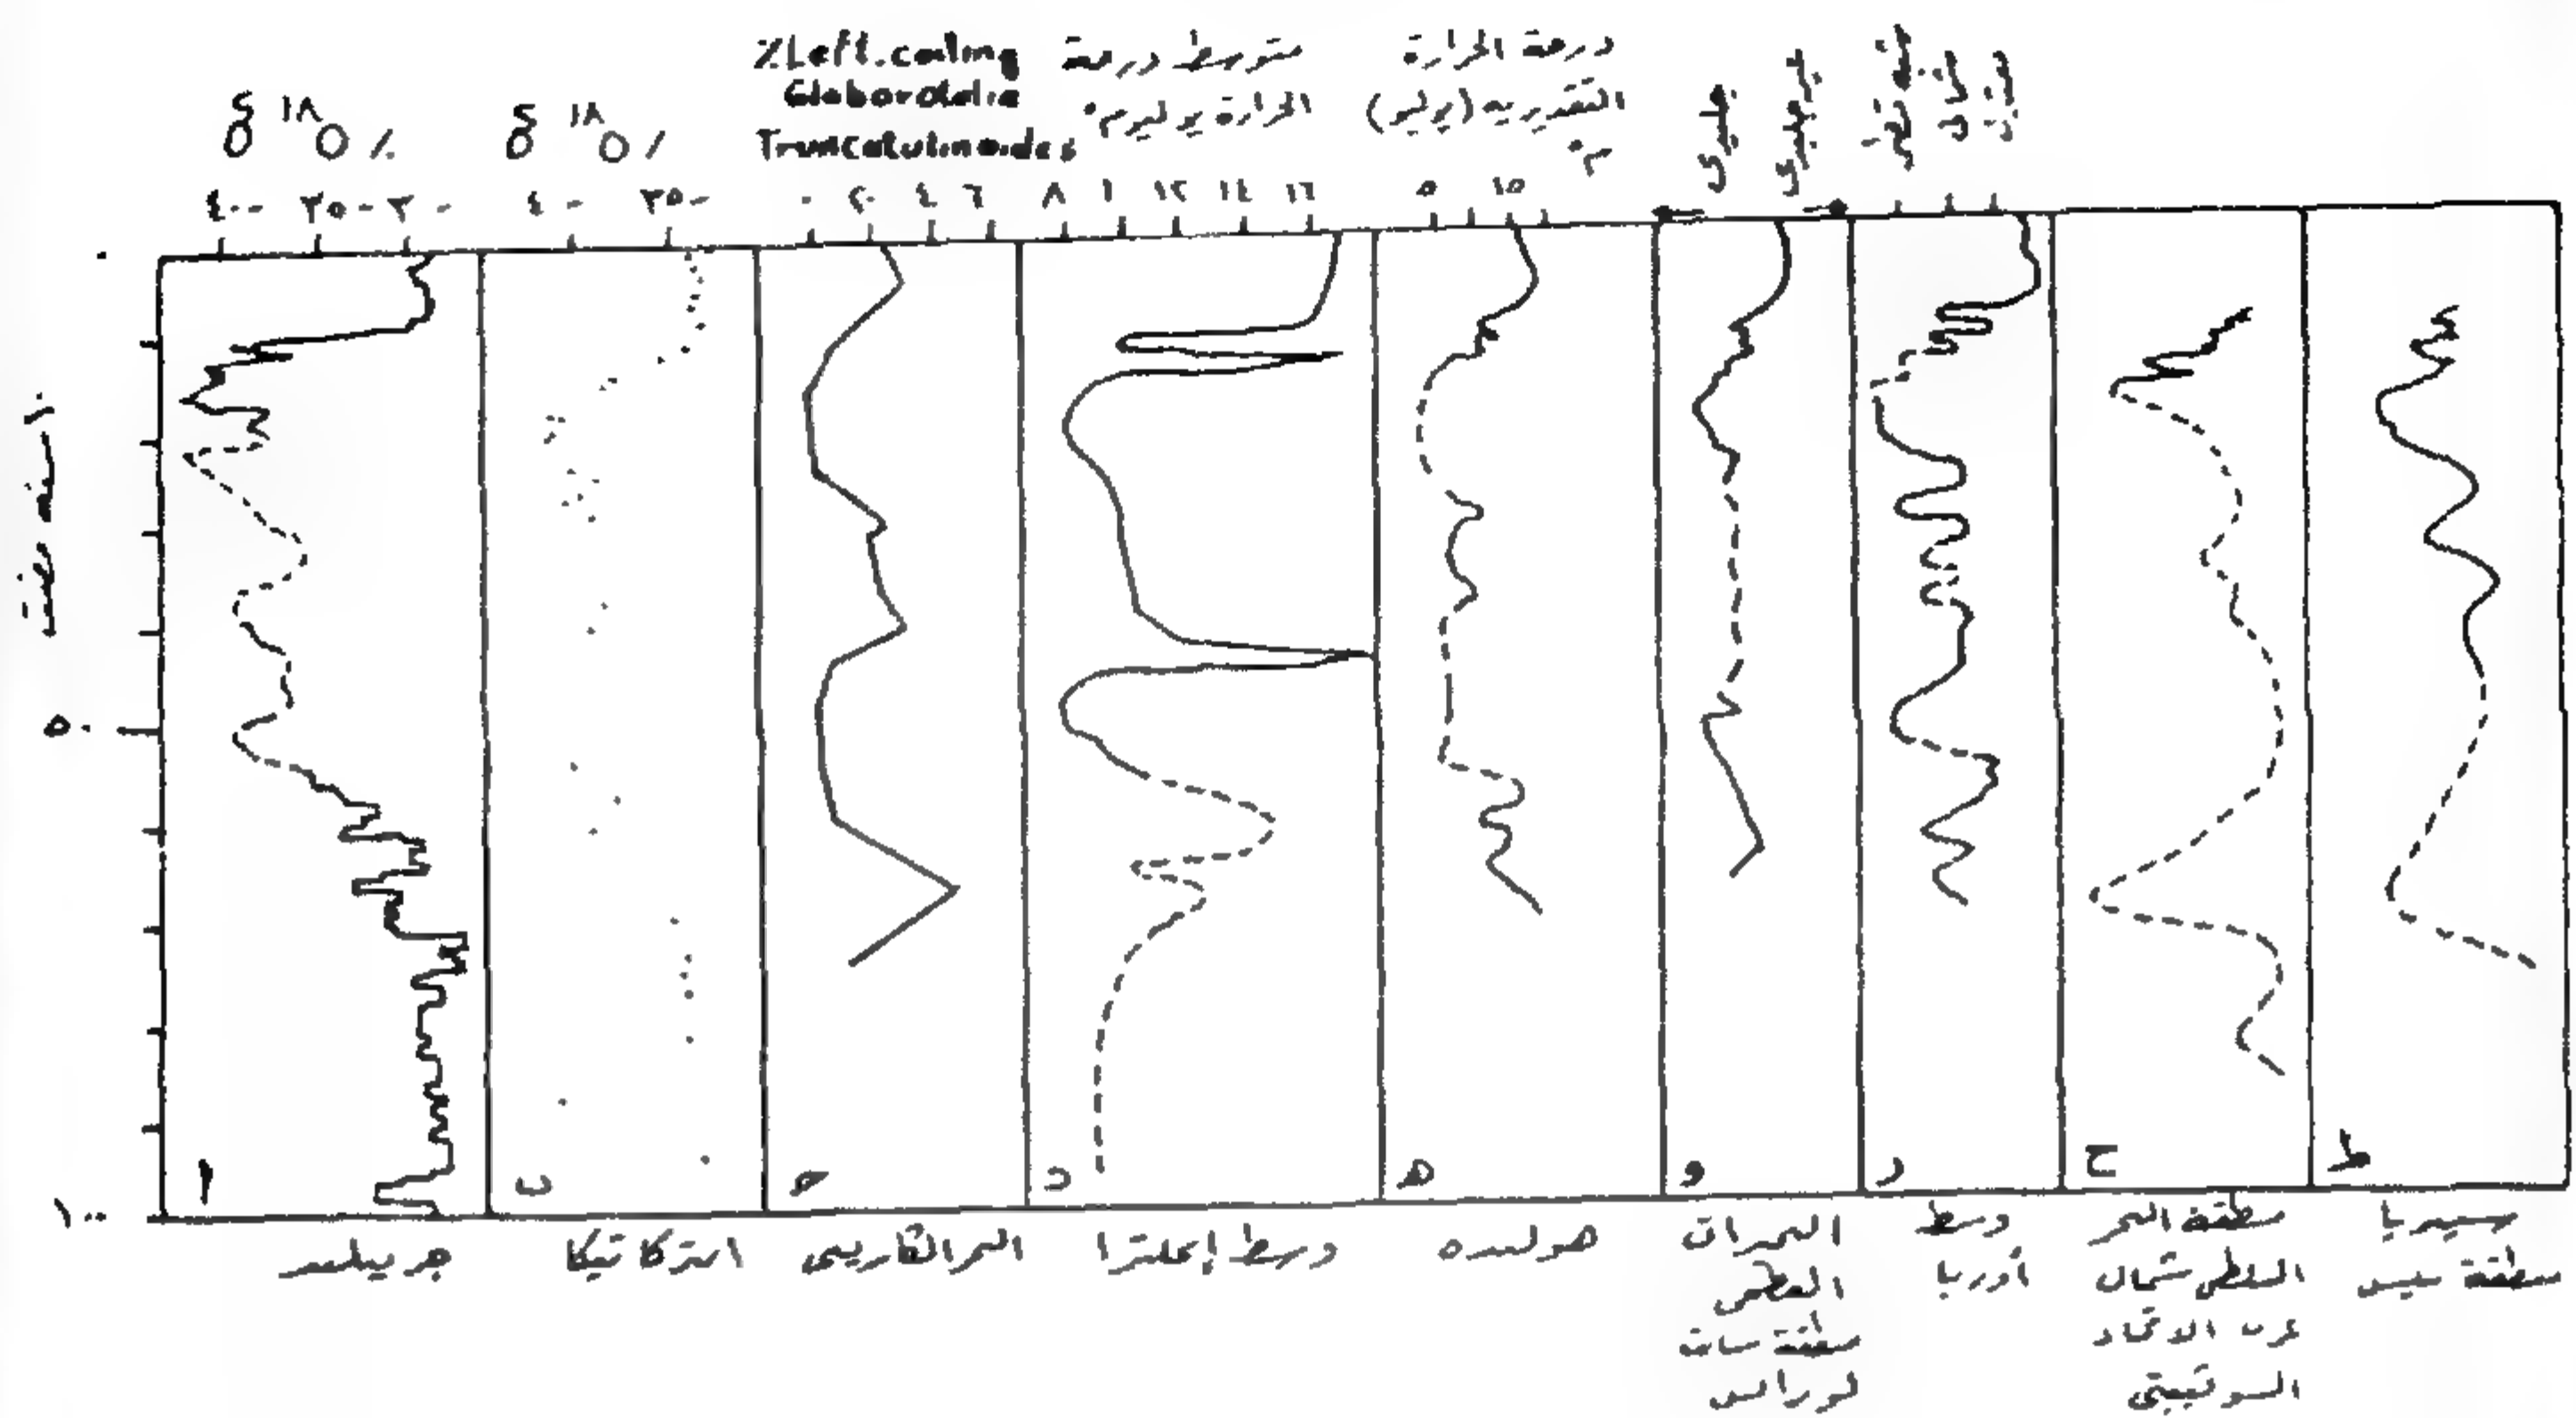 δ ١٨O ٪
δ ١٨O ٪
%Left.coiling
Globorotalia
Truncatulinoides
متوسط درجة
الحرارة يوليو م°
درجة الحرارة
التقديرية (يوليو)
م°
٤٠- ٣٥- ٣٠-
٤٠- ٣٥-
٠ ٢٠ ٤ ٦
٨ ١ ١٢ ١٤ ١٦
٥ ١٥
٠
٥٠
١٠٠
ا
ب
حـ
د
هـ
و
ر
ح
ط
جرينلند
انتركاتيكا
البحر الكاريبى
وسط إنجلترا
هولنده
البحيرات
العظمى
منطقة سانت
لورانس
وسط
أوربا
منطقة البحر
البلطى شمال
غرب الاتحاد
السوفييتى
سيبيريا